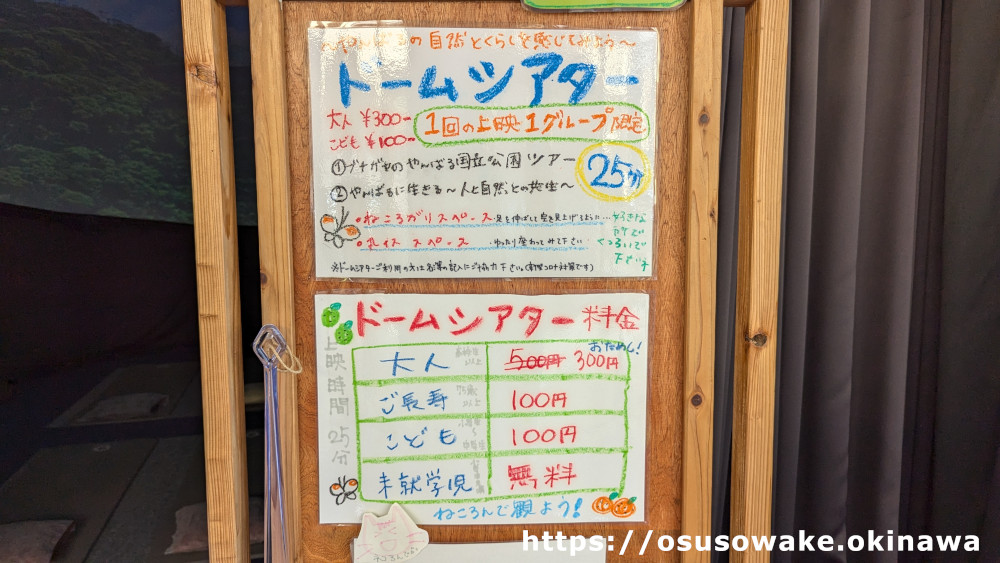 やんばるの自然とくらしを感じてみよう～
ドームシアター
大人 ¥300-
こども ¥100-
1回の上映1グループ限定
①ブナガヤのやんばる国立公園ツアー
②やんばるに生きる～人と自然との共生～
25分
・ねころがりスペース・足を伸ばして空を見上げてみよう…
・丸イススペース・ゆったり座わってみて下さい
好きな
所で
くつろいで
下さいネ
※ドームシアターご利用の方は名簿の記入にご協力下さい。(新型コロナ対策です)
ドームシアター 料金
おためし!
大人 高校生以上 500円 300円
ご長寿 75歳以上 100円
こども 100円
未就学児 無料
上映時間 25分
ねころんで観よう!
https://osusowake.okinawa